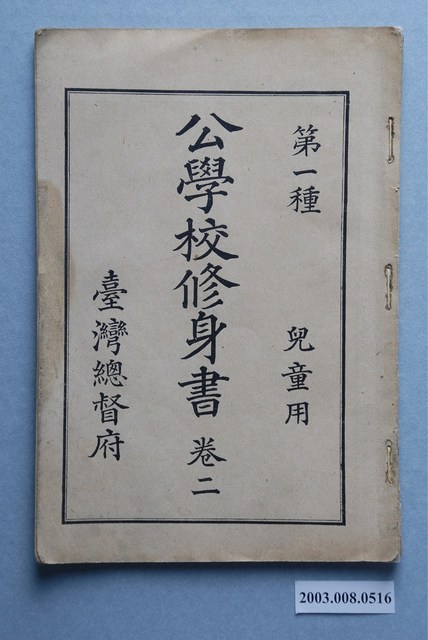 第一種 兒童用
公學校修身書 卷二
臺灣總督府
2003.008.0516